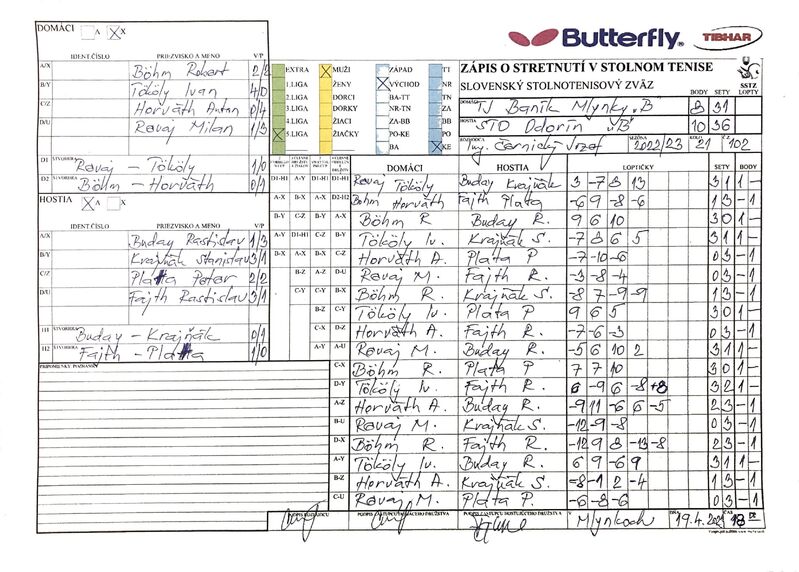 Butterfly TIBHAR
DOMÁCI A X
IDENT.ČÍSLO PRIEZVISKO A MENO V/P
A/X Böhm Robert 2/2
B/Y Tököly Ivan 4/0
C/Z Horváth Anton 0/4
D/U Revaj Milan 1/3
D1 ŠTVORHRA Revaj - Tököly 1/0
D2 ŠTVORHRA Böhm - Horváth 0/1
HOSTIA A X
IDENT.ČÍSLO PRIEZVISKO A MENO V/P
A/X Buday Rastislav 1/3
B/Y Krajňák Stanislav 3/1
C/Z Plata Peter 2/2
D/U Fajth Rastislav 3/1
H1 ŠTVORHRA Buday - Krajňák 0/1
H2 ŠTVORHRA Fajth - Plata 1/0
PRIPOMIENKY POZNÁMKY
EXTRA MUŽI ZÁPAD TT
1.LIGA ŽENY VÝCHOD NR
2.LIGA DORCI BA-TT TN
3.LIGA DORKY NR-TN ZA
4.LIGA ŽIACI ZA-BB BB
5.LIGA ŽIAČKY PO-KE PO
BA KE
ZÁPIS O STRETNUTÍ V STOLNOM TENISE
SLOVENSKÝ STOLNOTENISOVÝ ZVÄZ BODY SETY LOPTY
SSTZ
TJ Baník Mlynky "B" 8 31
HOSTIA STO Odorín "B" 10 36
ROZHODCA Ing. Černický Jozef SEZÓNA 2022/23 KOLO 21 ČZ 102
DOMÁCI HOSTIA LOPTIČKY SETY BODY
D1-H1 Revaj Tököly Buday Krajňák 3 -7 8 13 3 1 1 -
D2-H2 Böhm Horváth Fajth Plata -6 9 -8 -6 1 3 - 1
A-X Böhm R Buday R. 9 6 10 3 0 1 -
B-Y Tököly Iv. Krajňák S. -7 8 6 5 3 1 1 -
C-Z Horváth A. Plata P -7 -10 -6 0 3 - 1
D-U Revaj M. Fajth R. -3 -8 -4 0 3 - 1
B-X Böhm R. Krajňák S. -8 7 -9 -9 1 3 - 1
C-Y Tököly Iv. Plata P 9 6 5 3 0 1 -
D-Z Horváth A. Fajth R. -7 -6 -3 0 3 - 1
A-U Revaj M. Buday R. -5 6 10 2 3 1 1 -
C-X Böhm R. Plata P 7 7 10 3 0 1 -
D-Y Tököly Iv. Fajth R. 6 -9 6 -8 +8 3 2 1 -
A-Z Horváth A. Buday R. -9 11 -6 6 -5 2 3 - 1
B-U Revaj M. Krajňák S. -12 -9 -8 0 3 - 1
D-X Böhm R. Fajth R. -12 9 8 -13 -8 2 3 - 1
A-Y Tököly Iv. Buday R. 6 9 -6 9 3 1 1 -
B-Z Horváth A. Krajňák S. -8 -1 2 -4 1 3 - 1
C-U Revaj M. Plata P. -6 -8 -6 0 3 - 1
PODPIS ROZHODCU PODPIS ZÁSTUPCU DOMÁCEHO DRUŽSTVA PODPIS ZÁSTUPCU HOSŤUJÚCEHO DRUŽSTVA V Mlynkoch DŇA 19.4. ČAS 18